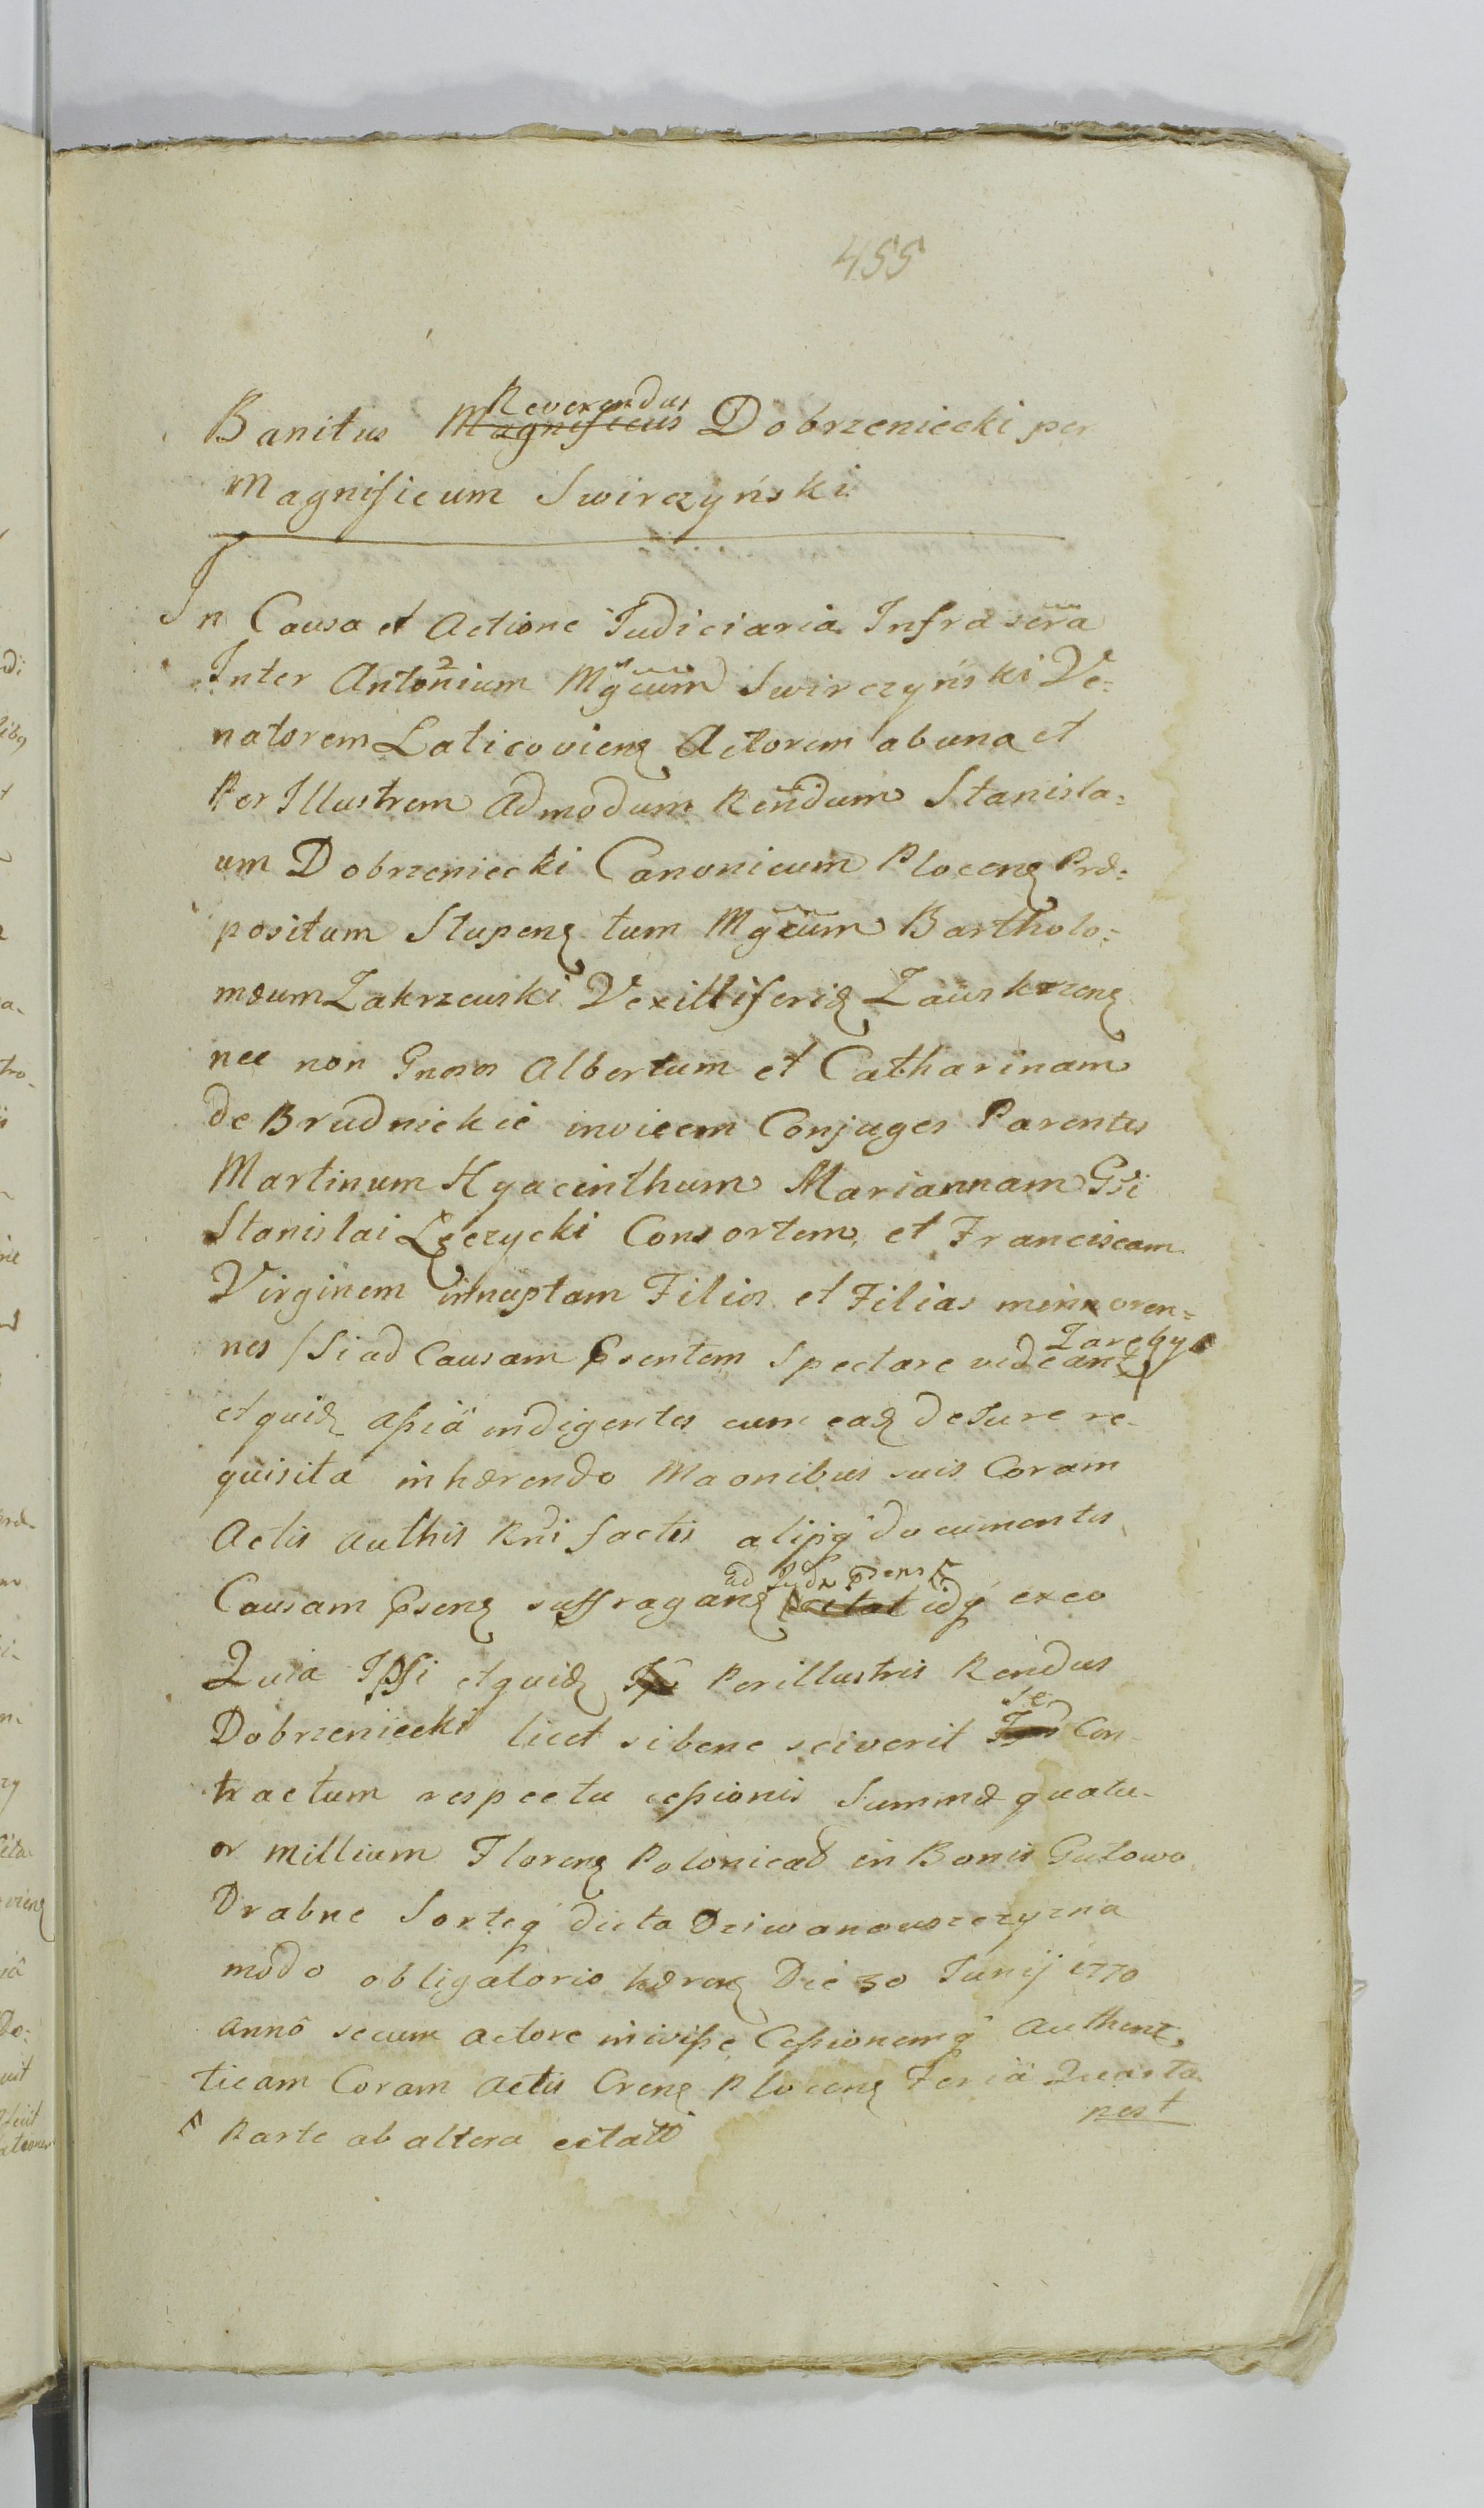 455
Banitus Magnificus Reverendus Dobrzeniecki per
Magnificum Swirczyński
In Causa et Actione Judiciaria Infrascra
Inter Antonium 2 Mgcum 1 Swirczyński Ve=
natorem Laticoviens Actorem ab una et
Per Illustrem Admodum Rendum Stanisla=
um Dobrzeniecki Canonicum Plocens Præ=
positum Stupens tum Mgcum Bartholo=
mæum Zakrzewski Vexilliferid Zawskrzens
nec non Gnosos Albertum et Catharinam
de Brudnickie invicem Conjuges Parentes
Martinum Hyacinthum Mariannam Gsi
Stanislai Łęczycki Consortem, et Franciscam
Virginem innuptam Filios et Filias minoren=
nes /Si ad Causam Psentem Spectare videant/ Zareby
et quid assia indigentes cum ead de Jure re-
quisita inhærendo Maonibus suis Coram
Actis Authis Rndi factis alijsq documentis
Causam Psens suffragans citat ad Judm Psens idq ex eo
Quia Ipsi et quid Perillustris Rendus
Dobrzeniecki licet si bene sciverit se Con-
tractum respectu cessionis Summæ quatu-
or millium Florens Polonical in Bonis Gutowo
Drabne Sorteq dicta Dziwanowszczyzna
modo obligatorio hærens Die 30 Junij 1770
anno secum actore inivisse Cessionemq Authen
ticam Coram Actis Crens Plocens Feria Quarta
post
Parte ab altera citatt